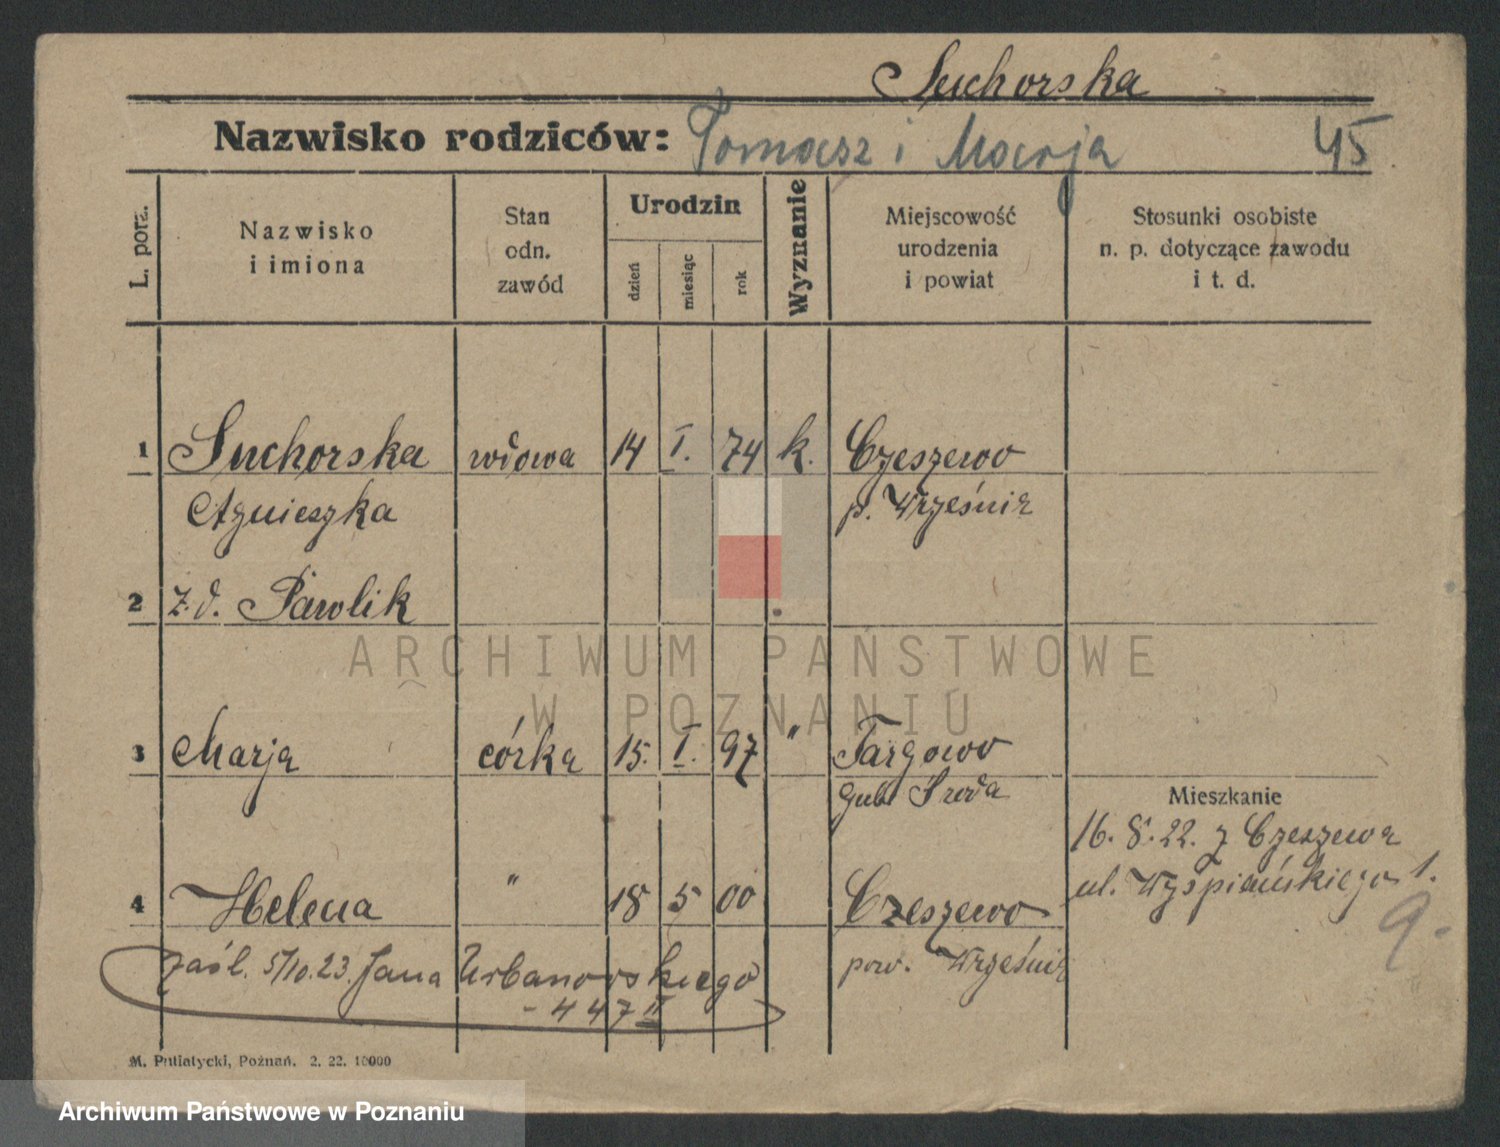 Suchorska
Nazwisko rodziców: Tomasz i Marja 45
L. porz.
Nazwisko
i imiona
Stan
odn.
zawód
Urodzin
dzień
miesiąc
rok
Wyznanie
Miejscowość
urodzenia
i powiat
Stosunki osobiste
n. p. dotyczące zawodu
i t. d.
1 Suchorska wdowa 14 I. 74 k. Czeszewo
Agnieszka p. Września
2 z.d. Pawlik
ARCHIWUM PAŃSTWOWE
W POZNANIU
3 Marja córka 15. I. 97 " Targowo
Środa
Mieszkanie
16. 8. 22. z Czeszewa
ul. Wyspiańskiego 1.
4 Helena " 18 5 00 Czeszewo
9.
zaśl. 5/10.23. Jana Urbanowskiego pow. Września
- 447 II
M. Putiatycki, Poznań. 2. 22. 10000
Archiwum Państwowe w Poznaniu